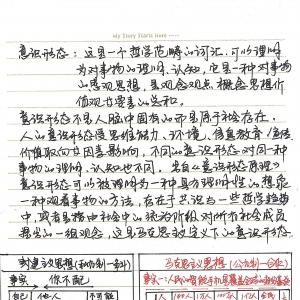 My Story Starts Here
意识形态：这是一个哲学范畴的词汇，可以理解
为对事物的理解、认知，它是一种对事物
的感观思想，是观念观点概念思想价
值观等要素的总和。
意识形态不是人脑中固有的而是源于社会存在。
人的意识形态受思维能力、环境、信息教育/宣传
价值取向等因素影响，不同的意识形态对同一种
事物的理解、认知也不同。出自《意识形态原理》
意识形态可以被理解为一种具有理解性的想象
一种观看事物的方法，存在于共识与一些哲学趋势
中，或者是指由社会中的统治阶级对所有社会成员
提出的一组观念，这是马克思主义定义下的意识形态
封建主义思想（私有制一奴）
马克思主义思想（公有制一
事实 你不配
自己 他人 不可能